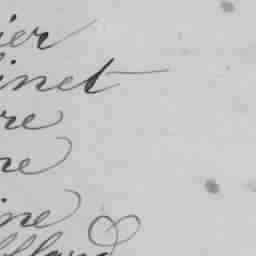 ier
inet
re
re
ine
ffland